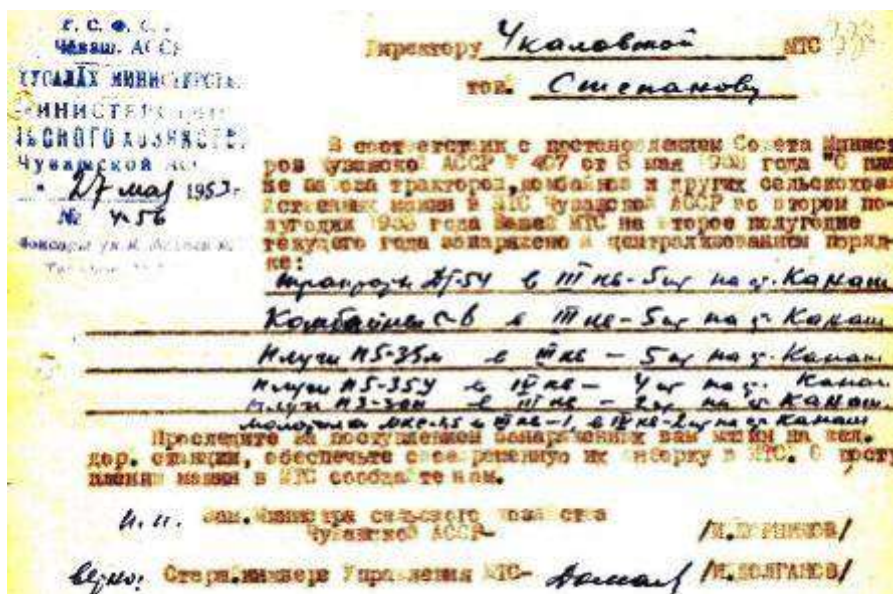 Р. С. Ф. С. Р.
Чуваш. АССР
МИНИСТЕРСТВО
СЕЛЬСКОГО ХОЗЯЙСТВА
Чувашской АССР
27 мая 1953 г.
№ 4-56
Директору Чкаловской МТС
тов. Степанову
В соответствии с постановлением Совета Минист
ров Чувашской АССР № 407 от 8 мая 1953 года "О пла
не завоза тракторов, комбайнов и других сельскохозяй
ственных машин в МТС Чувашской АССР во втором по
лугодии 1953 года Вашей МТС на второе полугодие
текущего года занаряжено в централизованном поряд
ке:
тракторы ДТ-54 в III кв - 5 шт на ст. Канаш
Комбайнен С-6 в III кв - 5 шт на ст. Канаш
Плуги П5-35м в III кв - 5 шт на ст. Канаш
Плуги П5-35У в IV кв - 4 шт на ст. Канаш
Плуги П3-30 в III кв - 2 шт на ст. Канаш
молотилка в III кв - 1, в IV кв - 2 шт на ст Канаш
Проследите за поступлением занаряженных вам машин на жел.
дор. станции, обеспечьте своевременную их выборку в МТС. О посту
плении машин в МТС сообщайте нам.
п.п. Зам. Министра сельского хозяйства
Чувашской АССР-
верно: Стар. инженер Управления МТС- /И. ДОЛГАНОВ/